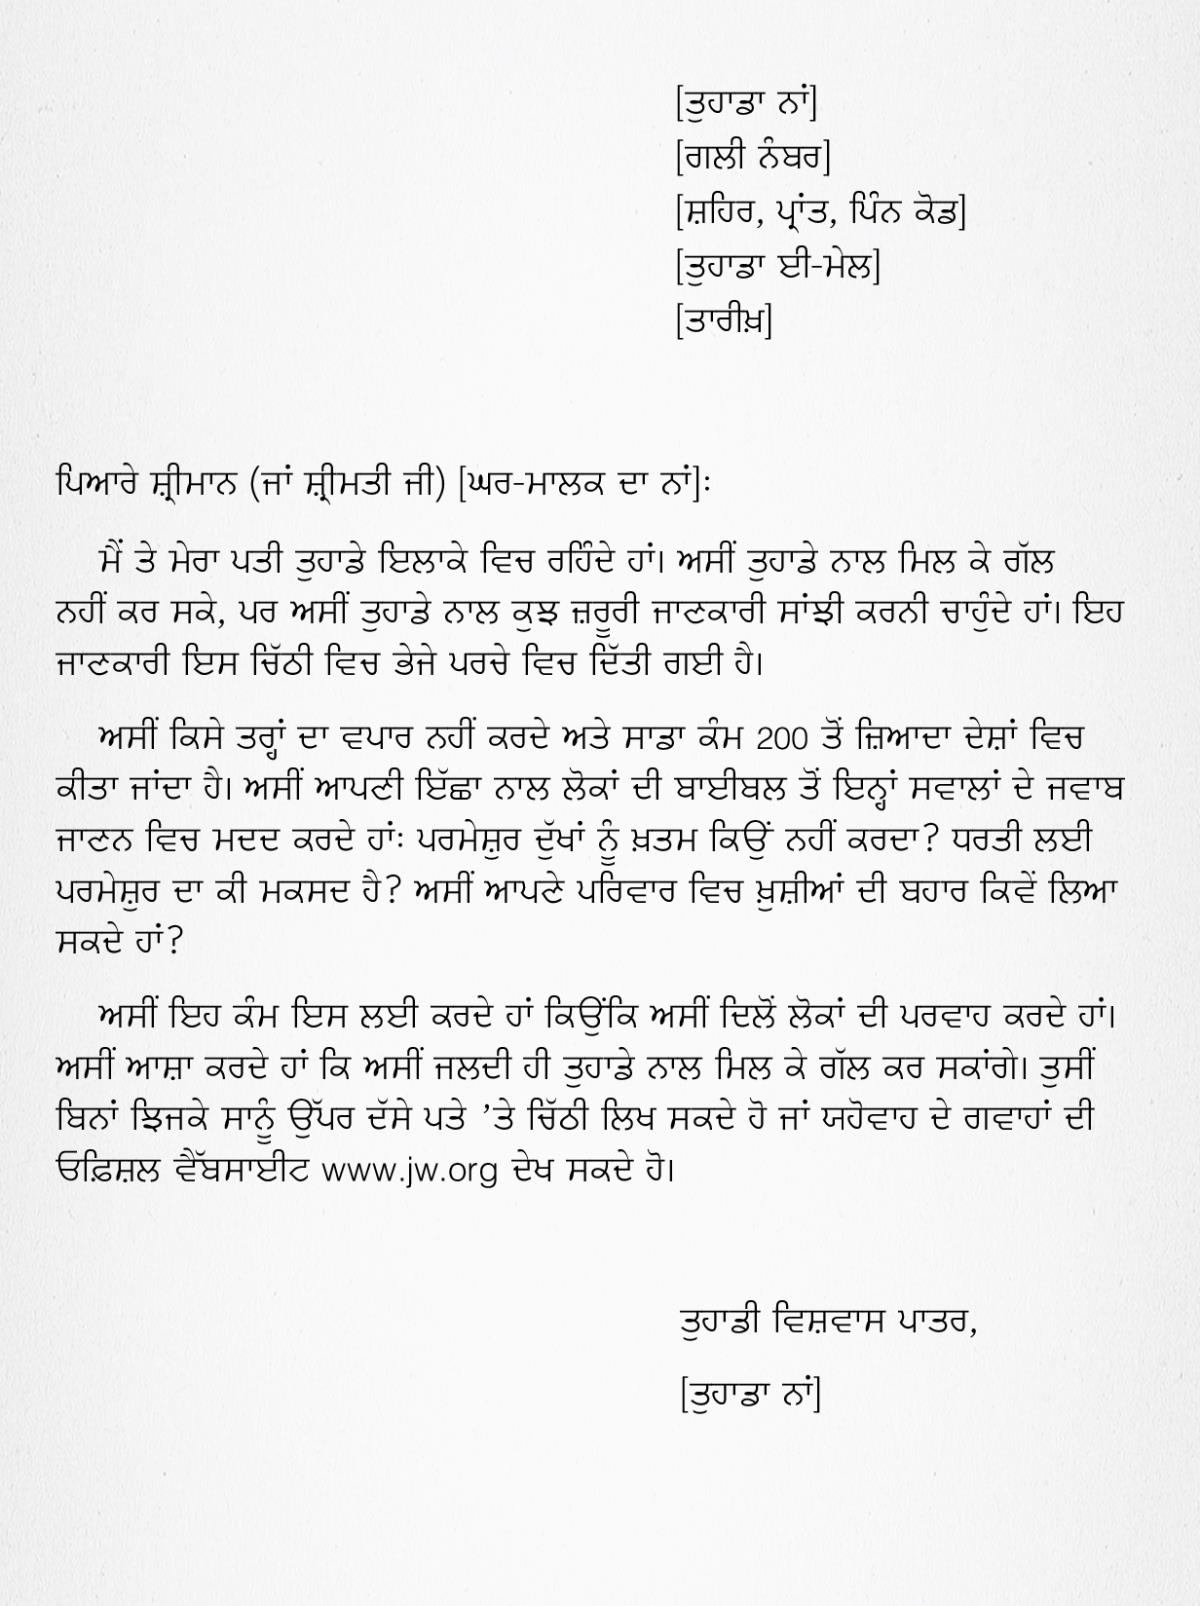 [ਤੁਹਾਡਾ ਨਾਂ]
[ਗਲੀ ਨੰਬਰ]
[ਸ਼ਹਿਰ, ਪ੍ਰਾਂਤ, ਪਿੰਨ ਕੋਡ]
[ਤੁਹਾਡਾ ਈ-ਮੇਲ]
[ਤਾਰੀਖ਼]
ਪਿਆਰੇ ਸ਼੍ਰੀਮਾਨ (ਜਾਂ ਸ਼੍ਰੀਮਤੀ ਜੀ) [ਘਰ-ਮਾਲਕ ਦਾ ਨਾਂ]:
ਮੈਂ ਤੇ ਮੇਰਾ ਪਤੀ ਤੁਹਾਡੇ ਇਲਾਕੇ ਵਿਚ ਰਹਿੰਦੇ ਹਾਂ। ਅਸੀਂ ਤੁਹਾਡੇ ਨਾਲ ਮਿਲ ਕੇ ਗੱਲ
ਨਹੀਂ ਕਰ ਸਕੇ, ਪਰ ਅਸੀਂ ਤੁਹਾਡੇ ਨਾਲ ਕੁਝ ਜ਼ਰੂਰੀ ਜਾਣਕਾਰੀ ਸਾਂਝੀ ਕਰਨੀ ਚਾਹੁੰਦੇ ਹਾਂ। ਇਹ
ਜਾਣਕਾਰੀ ਇਸ ਚਿੱਠੀ ਵਿਚ ਭੇਜੇ ਪਰਚੇ ਵਿਚ ਦਿੱਤੀ ਗਈ ਹੈ।
ਅਸੀਂ ਕਿਸੇ ਤਰ੍ਹਾਂ ਦਾ ਵਪਾਰ ਨਹੀਂ ਕਰਦੇ ਅਤੇ ਸਾਡਾ ਕੰਮ 200 ਤੋਂ ਜ਼ਿਆਦਾ ਦੇਸ਼ਾਂ ਵਿਚ
ਕੀਤਾ ਜਾਂਦਾ ਹੈ। ਅਸੀਂ ਆਪਣੀ ਇੱਛਾ ਨਾਲ ਲੋਕਾਂ ਦੀ ਬਾਈਬਲ ਤੋਂ ਇਨ੍ਹਾਂ ਸਵਾਲਾਂ ਦੇ ਜਵਾਬ
ਜਾਣਨ ਵਿਚ ਮਦਦ ਕਰਦੇ ਹਾਂ: ਪਰਮੇਸ਼ੁਰ ਦੁੱਖਾਂ ਨੂੰ ਖ਼ਤਮ ਕਿਉਂ ਨਹੀਂ ਕਰਦਾ? ਧਰਤੀ ਲਈ
ਪਰਮੇਸ਼ੁਰ ਦਾ ਕੀ ਮਕਸਦ ਹੈ? ਅਸੀਂ ਆਪਣੇ ਪਰਿਵਾਰ ਵਿਚ ਖ਼ੁਸ਼ੀਆਂ ਦੀ ਬਹਾਰ ਕਿਵੇਂ ਲਿਆ
ਸਕਦੇ ਹਾਂ?
ਅਸੀਂ ਇਹ ਕੰਮ ਇਸ ਲਈ ਕਰਦੇ ਹਾਂ ਕਿਉਂਕਿ ਅਸੀਂ ਦਿਲੋਂ ਲੋਕਾਂ ਦੀ ਪਰਵਾਹ ਕਰਦੇ ਹਾਂ।
ਅਸੀਂ ਆਸ਼ਾ ਕਰਦੇ ਹਾਂ ਕਿ ਅਸੀਂ ਜਲਦੀ ਹੀ ਤੁਹਾਡੇ ਨਾਲ ਮਿਲ ਕੇ ਗੱਲ ਕਰ ਸਕਾਂਗੇ। ਤੁਸੀਂ
ਬਿਨਾਂ ਝਿਜਕੇ ਸਾਨੂੰ ਉੱਪਰ ਦੱਸੇ ਪਤੇ ’ਤੇ ਚਿੱਠੀ ਲਿਖ ਸਕਦੇ ਹੋ ਜਾਂ ਯਹੋਵਾਹ ਦੇ ਗਵਾਹਾਂ ਦੀ
ਓਫ਼ਿਸ਼ਲ ਵੈੱਬਸਾਈਟ www.jw.org ਦੇਖ ਸਕਦੇ ਹੋ।
ਤੁਹਾਡੀ ਵਿਸ਼ਵਾਸ ਪਾਤਰ,
[ਤੁਹਾਡਾ ਨਾਂ]